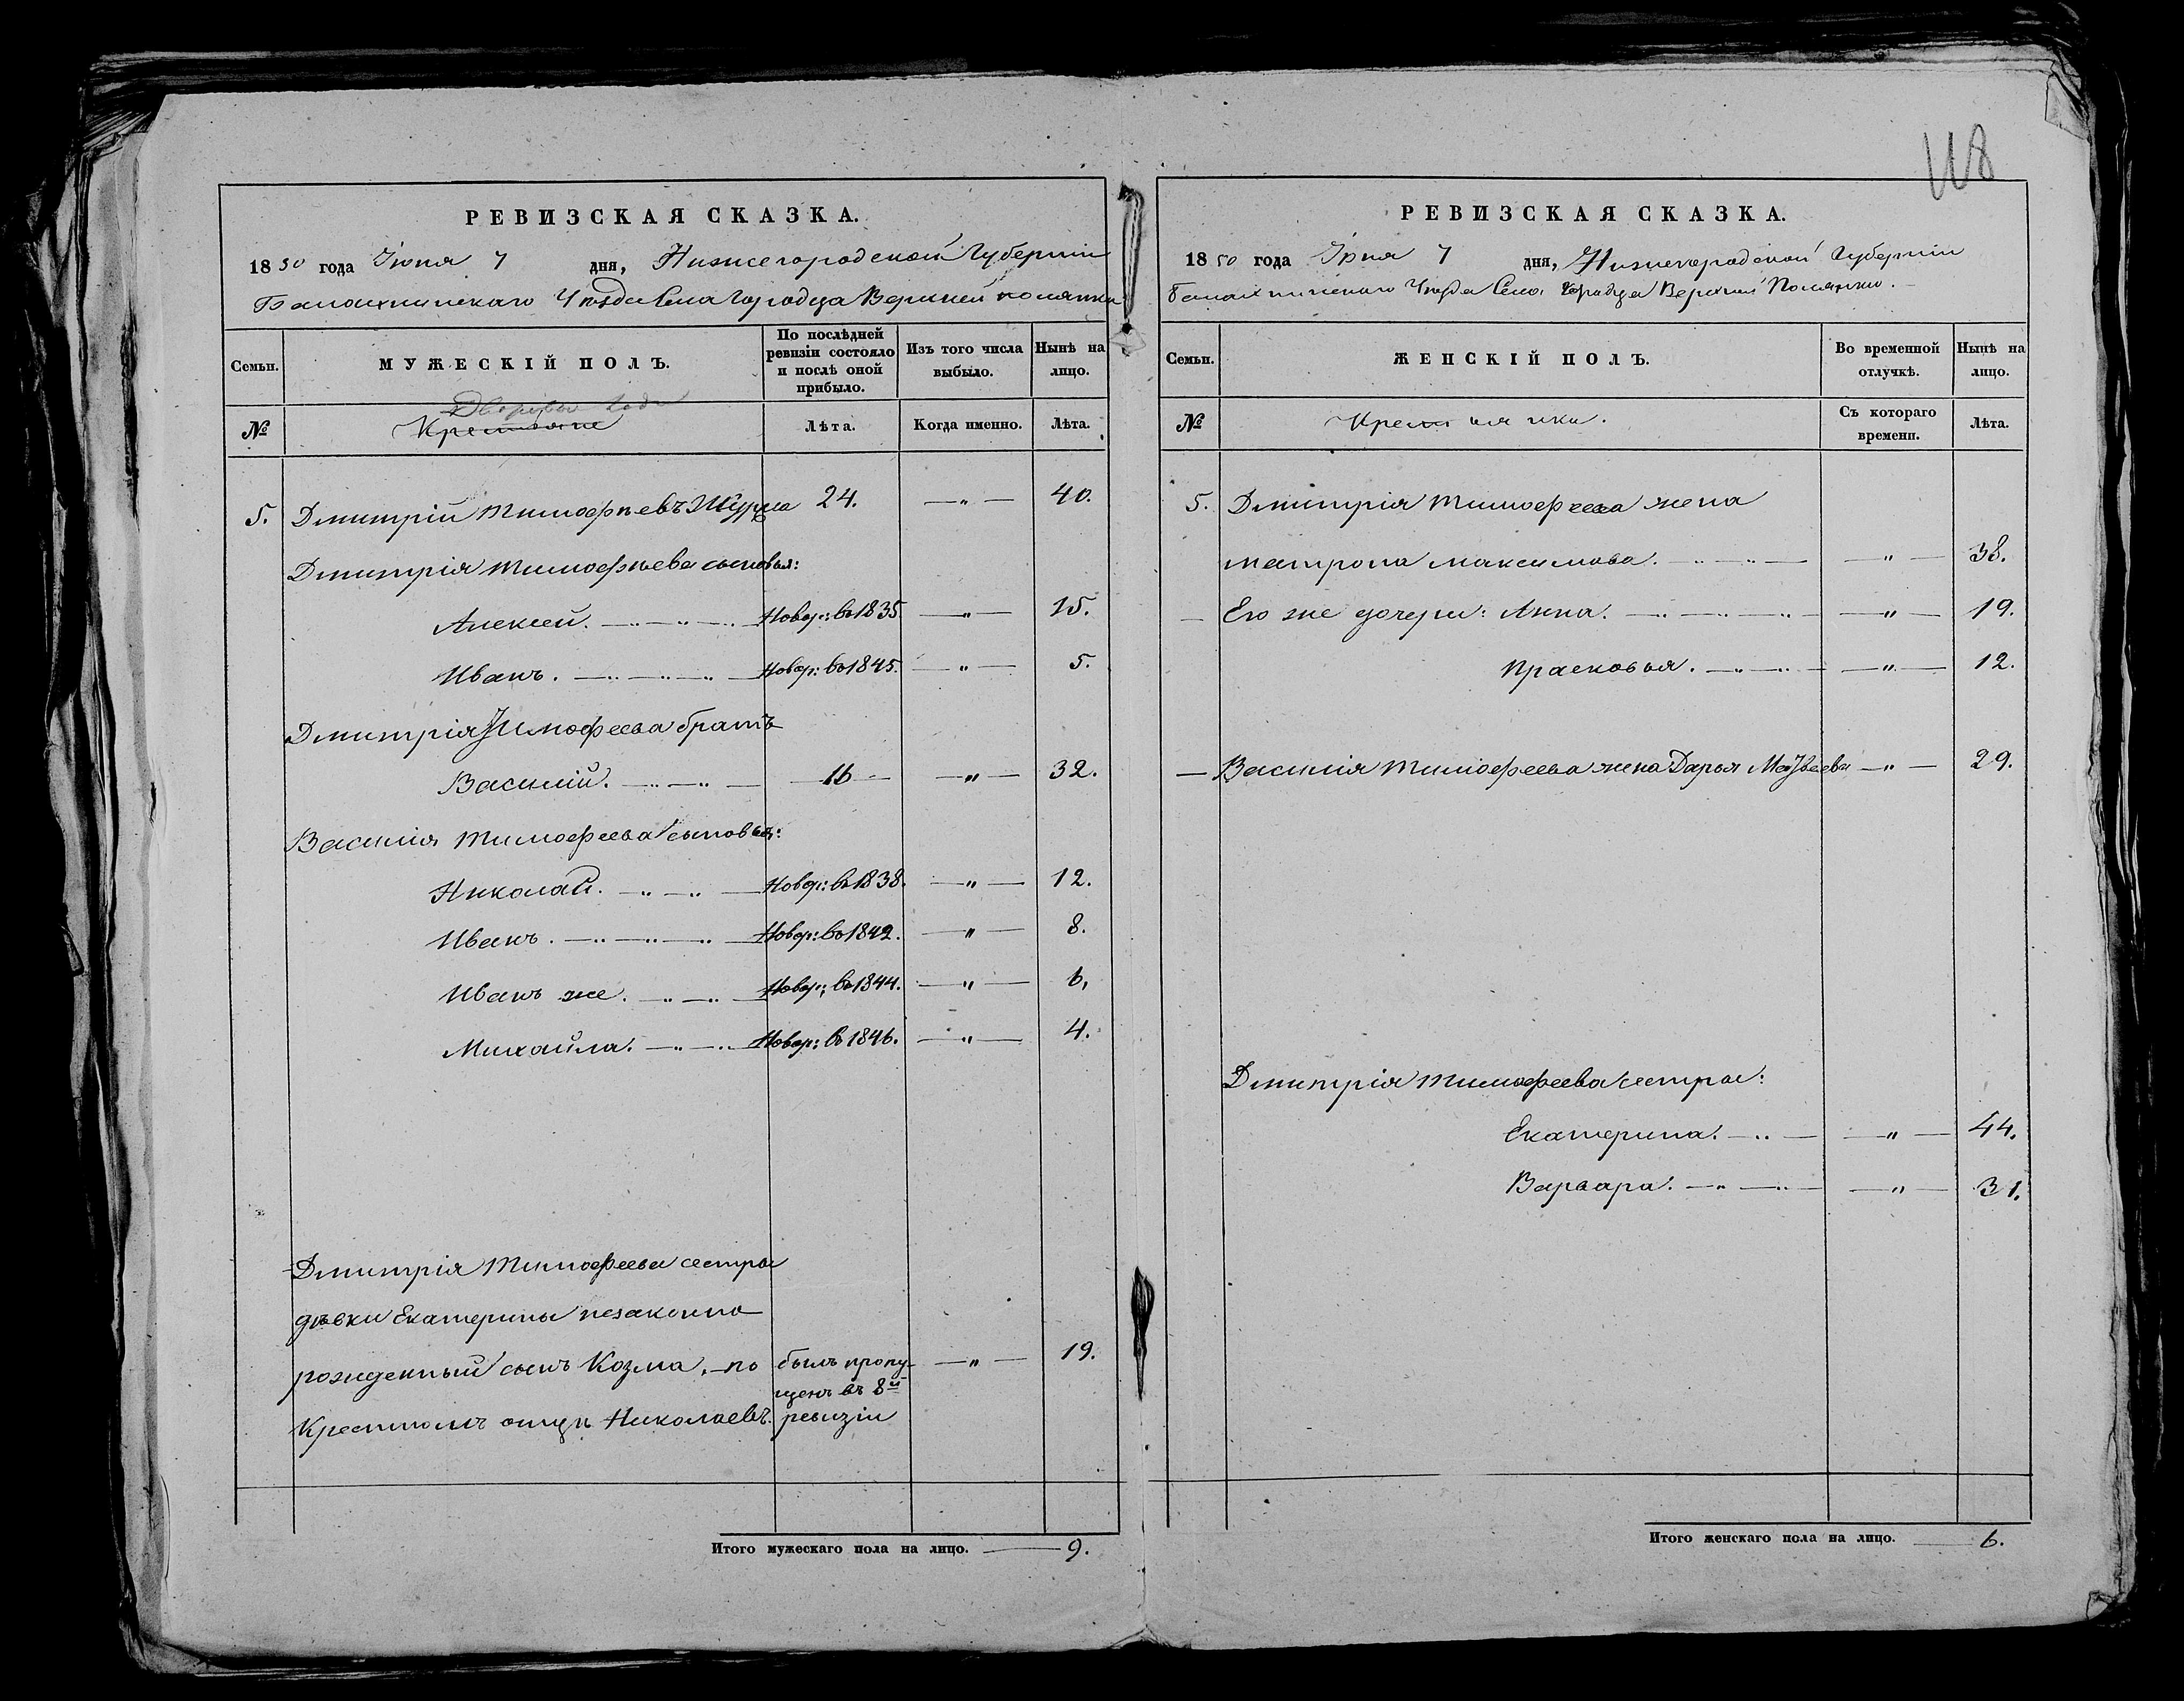 118
РЕВИЗСКАЯ СКАЗКА.
1850 года Іюня 7 дня, Нижегородской Губерніи
Балахнинскаго Уѣзда Села Городца Верхней полянки
Семьи. МУЖЕСКІЙ ПОЛЪ. По послѣдней ревизіи состояло и послѣ оной прибыло. Изъ того числа выбыло. Нынѣ на лицо.
Дворовы люди
№ Крестьяне Лѣта. Когда именно. Лѣта.
5. Дмитрій Тимофѣевъ 24. — „ — 40.
Дмитрія Тимофѣева сыновья:
Алексей. Новор: въ 1835. — „ — 15.
Иванъ. Новор: въ 1845. — „ — 5.
Дмитрія Тимофеева братъ
Василій. 16 — „ — 32.
Василія Тимофеева сыновья:
Николай. Новор: въ 1838. — „ — 12.
Иванъ. Новор: въ 1842. — „ — 8.
Иванъ же. Новор: въ 1844. — „ — 6,
Михайла. Новор: въ 1846. — „ — 4.
Дмитрія Тимофеева сестры
дѣвки Екатерины незаконно
рожденный сынъ Козма, по былъ пропу- — „ — 19.
щенъ въ 8й
Крестномъ отцѣ Николаевъ. ревизіи
Итого мужескаго пола на лицо. 9.
РЕВИЗСКАЯ СКАЗКА.
1850 года Іюня 7 дня, Нижегородской Губерніи
Балахнинскаго Уѣзда Села Городца Верхней Полянки.
Семьи. ЖЕНСКІЙ ПОЛЪ. Во временной отлучкѣ. Нынѣ на лицо.
№ Крестьянки. Съ котораго времени. Лѣта.
5. Дмитрія Тимофеева жена
Матрона Максимова. — „ — 38.
— Его же дочери: Анна. — „ — 19.
Прасковья. — „ — 12.
— Василія Тимофеева жена Дарья Матвеева — „ — 29.
Дмитрія Тимофеева сестры:
Екатерина. — „ — 44.
Варвара. — „ — 31.
Итого женскаго пола на лицо. 6.